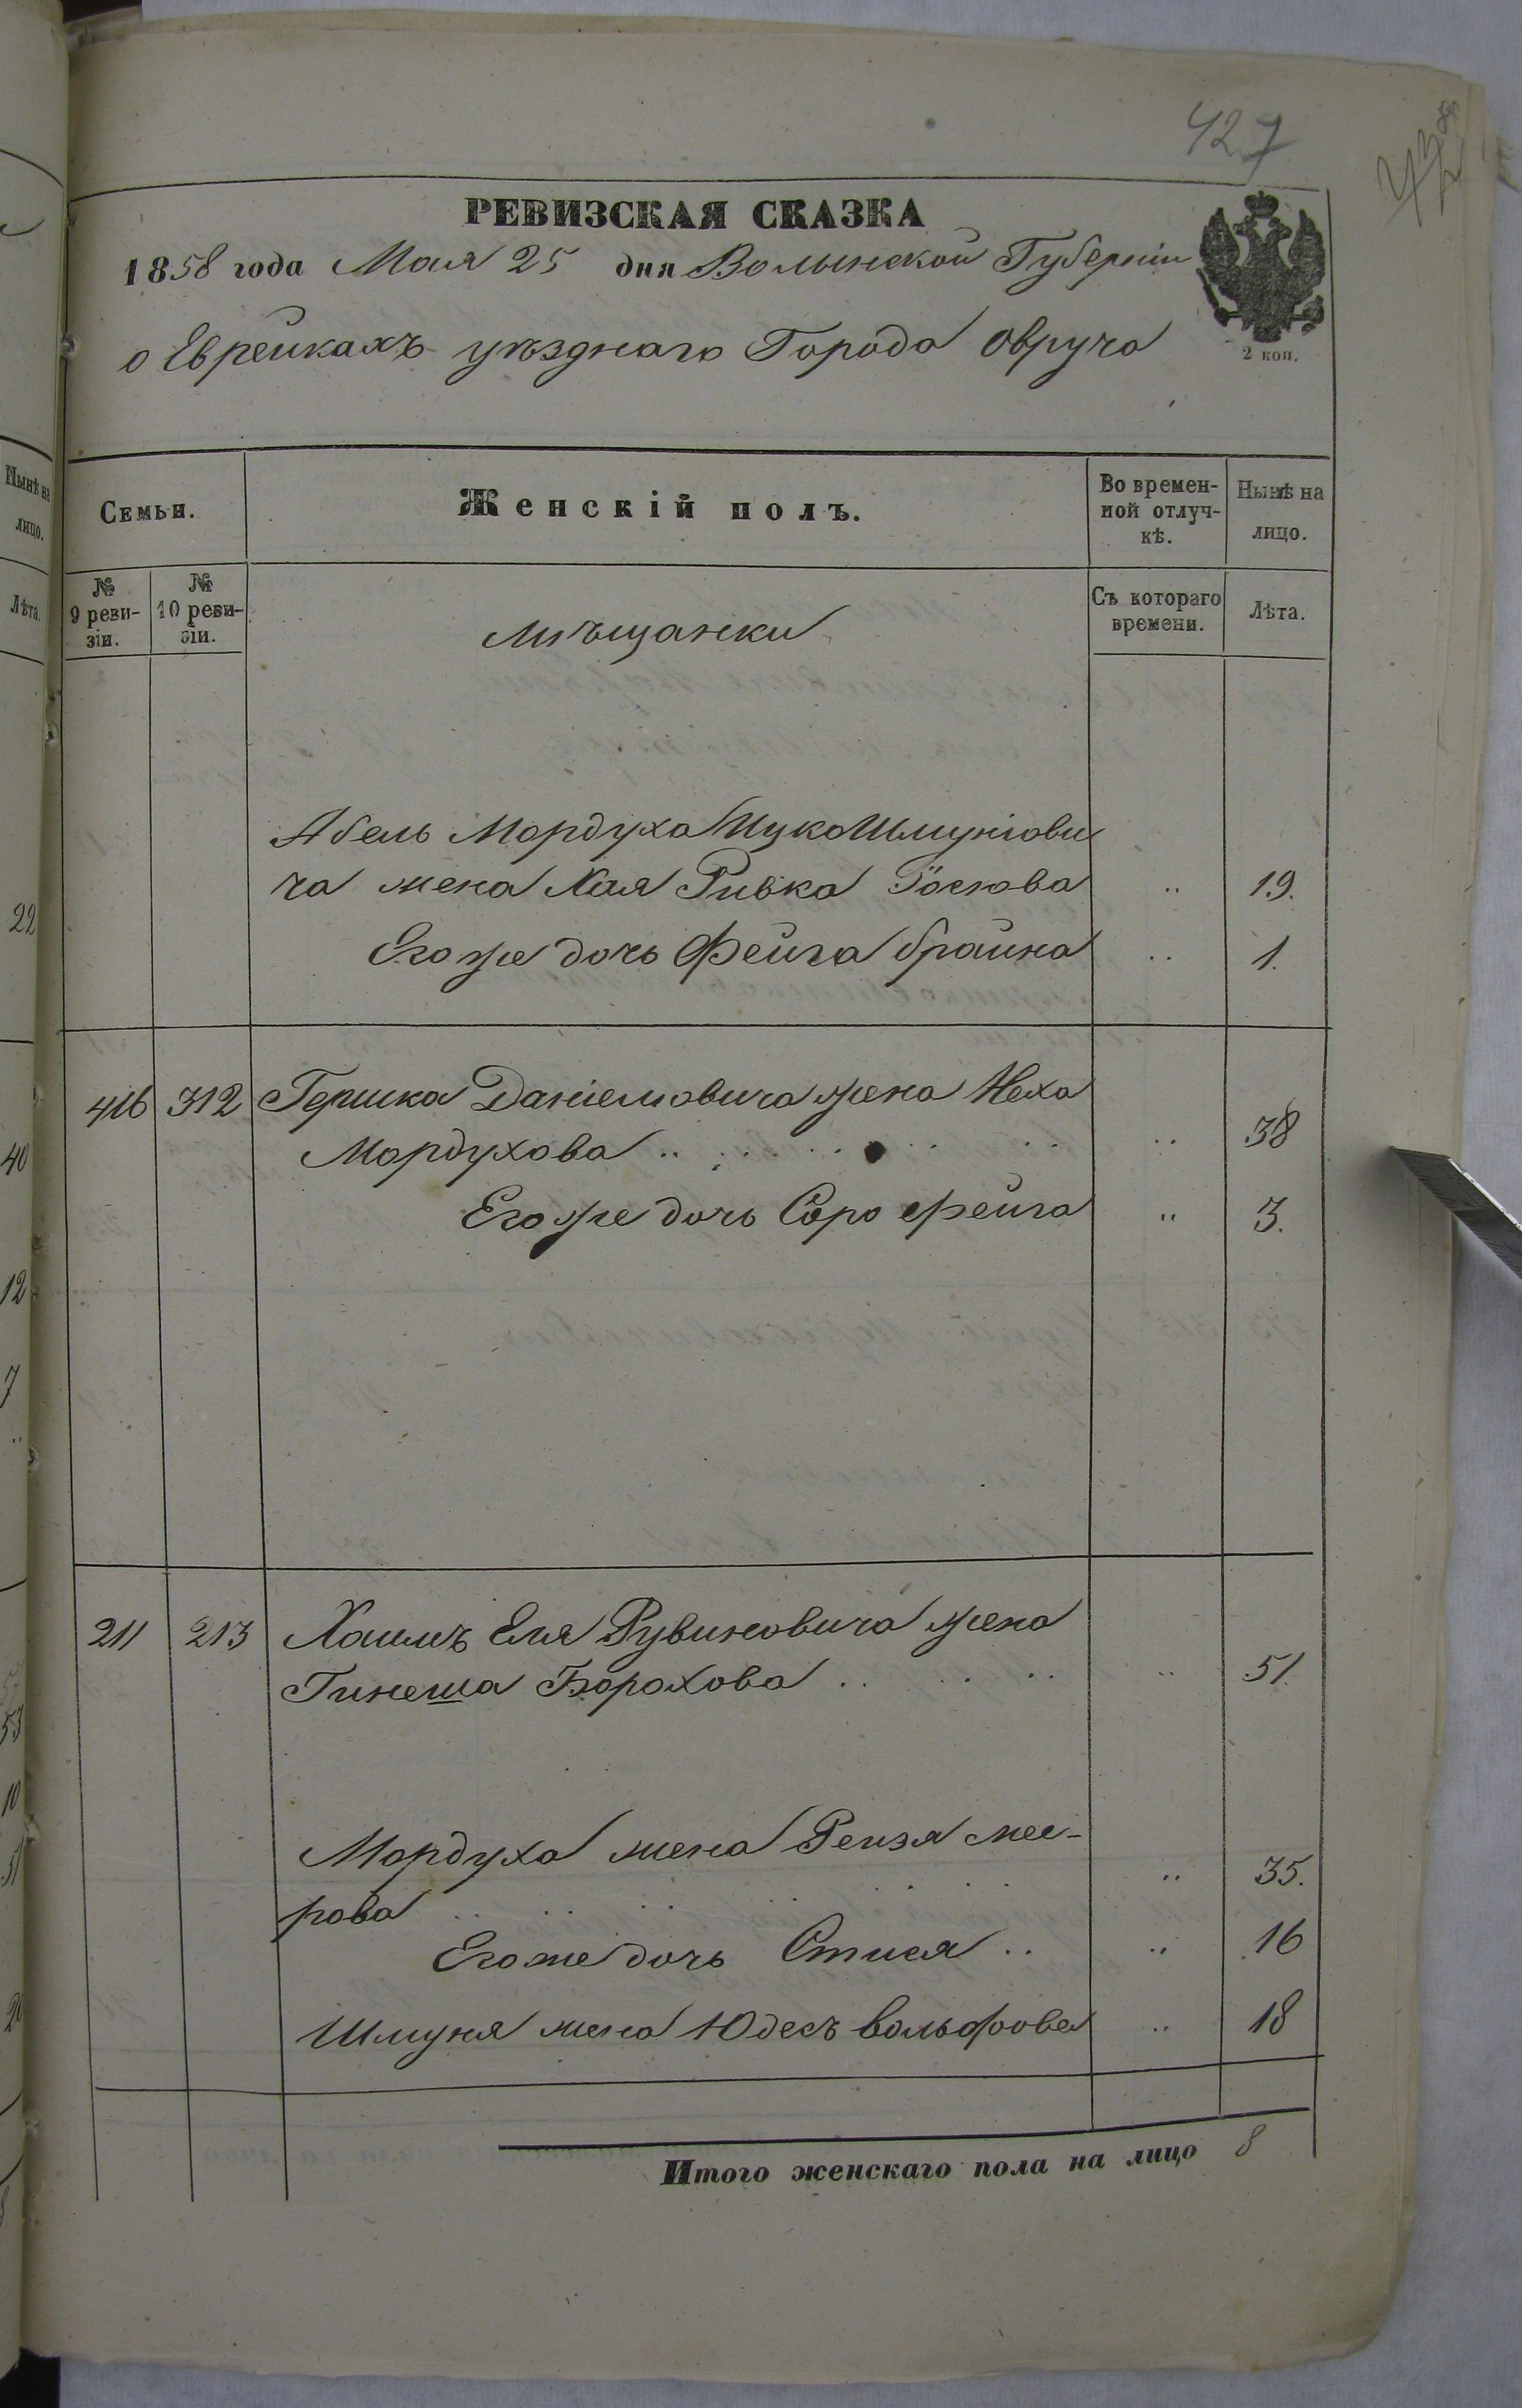 427
РЕВИЗСКАЯ СКАЗКА
1858 года Мая 25 дня Волынской Губерніи
о Еврейкахъ уѣзднаго Города Овруча
2 коп.
Семьи.
Женскій полъ.
Во времен-
ной отлуч-
кѣ.
Нынѣ на
лицо.
№
9 реви-
зіи.
№
10 реви-
зіи.
Мѣщанки
Съ котораго
времени.
Лѣта.
Абель Мордуха Ицко Шмуніови
ча жена Хая Ривка Іосіова .. 19.
Его же дочь Фейга Брайна .. 1.
416 312 Гершка Даніеліовича жена Неха
Мордухова .. .. 38
Его же дочь Соро Фейга .. 3.
211 213 Хаимъ Еля Рувиновича жена
Гинеша Борохова .. .. 51.
Мордуха жена Рейзя Мее-
рова .. .. 35.
Его же дочь Стися .. .. 16
Шмуня жена Юдесъ Вольфова .. 18
Итого женскаго пола на лицо 8
Нынѣ на
лицо.
Лѣта.
22
40
12
7
53
10
51